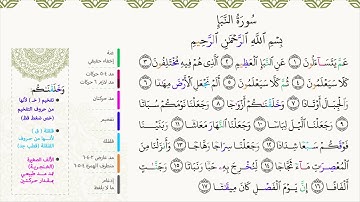 سُورَةُ النَّبَإِ
بِسْمِ اللَّهِ الرَّحْمَٰنِ الرَّحِيمِ
عَمَّ يَتَسَآءَلُونَ ١ عَنِ النَّبَإِ الْعَظِيمِ ٢ الَّذِي هُمْ فِيهِ مُخْتَلِفُونَ ٣
كَلَّا سَيَعْلَمُونَ ٤ ثُمَّ كَلَّا سَيَعْلَمُونَ ٥ أَلَمْ نَجْعَلِ الْأَرْضَ مِهَٰدًا ٦
وَالْجِبَالَ أَوْتَادًا ٧ وَخَلَقْنَٰكُمْ أَزْوَٰجًا ٨ وَجَعَلْنَا نَوْمَكُمْ سُبَاتًا
٩ وَجَعَلْنَا الَّيْلَ لِبَاسًا ١٠ وَجَعَلْنَا النَّهَارَ مَعَاشًا ١١ وَبَنَيْنَا
فَوْقَكُمْ سَبْعًا شِدَادًا ١٢ وَجَعَلْنَا سِرَاجًا وَهَّاجًا ١٣ وَأَنزَلْنَا مِنَ
الْمُعْصِرَٰتِ مَآءً ثَجَّاجًا ١٤ لِّنُخْرِجَ بِهِ حَبًّا وَنَبَاتًا ١٥ وَجَنَّٰتٍ
أَلْفَافًا ١٦ إِنَّ يَوْمَ الْفَصْلِ كَانَ مِيقَٰتًا ١٧
غنة
إخفاء حقيقي
مد ٤-٥ حركات
مد لازم ٦ حركات
مد حركتان
تفخيم
قلقلة
مد عارض ٢-٤-٦
إدغام
ما لا يلفظ
وَخَلَقْنَٰكُمْ:
تفخيم (خـ) لأنها
من حروف التفخيم
(خص ضغط قظ)
قلقلة (ق)
لأنها من حروف
القلقلة (قطب جد)
الألف الصغيرة
(الخنجرية)
مد طبيعي
بمقدار حركتين